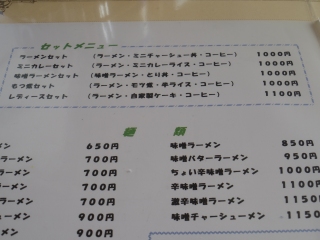 セットメニュー
ラーメンセット (ラーメン・ミニチャーシュー丼・コーヒー) 1000円
ミニカレーセット (ラーメン・ミニカレーライス・コーヒー) 1000円
味噌ラーメンセット (味噌ラーメン・とり丼・コーヒー) 1000円
もつ煮セット (ラーメン・モツ煮・半ライス・コーヒー) 1000円
レディースセット (ラーメン・自家製ケーキ・コーヒー) 1100円
麺類
メン 650円 味噌ラーメン 850円
ラーメン 700円 味噌バターラーメン 950円
ラーメン 700円 ちょい辛味噌ラーメン 1000円
ーメン 700円 辛味噌ラーメン 1100円
ラーメン 700円 激辛味噌ラーメン 1150円
ーメン 900円 味噌チャーシューメン 1150
ラーメン 900円